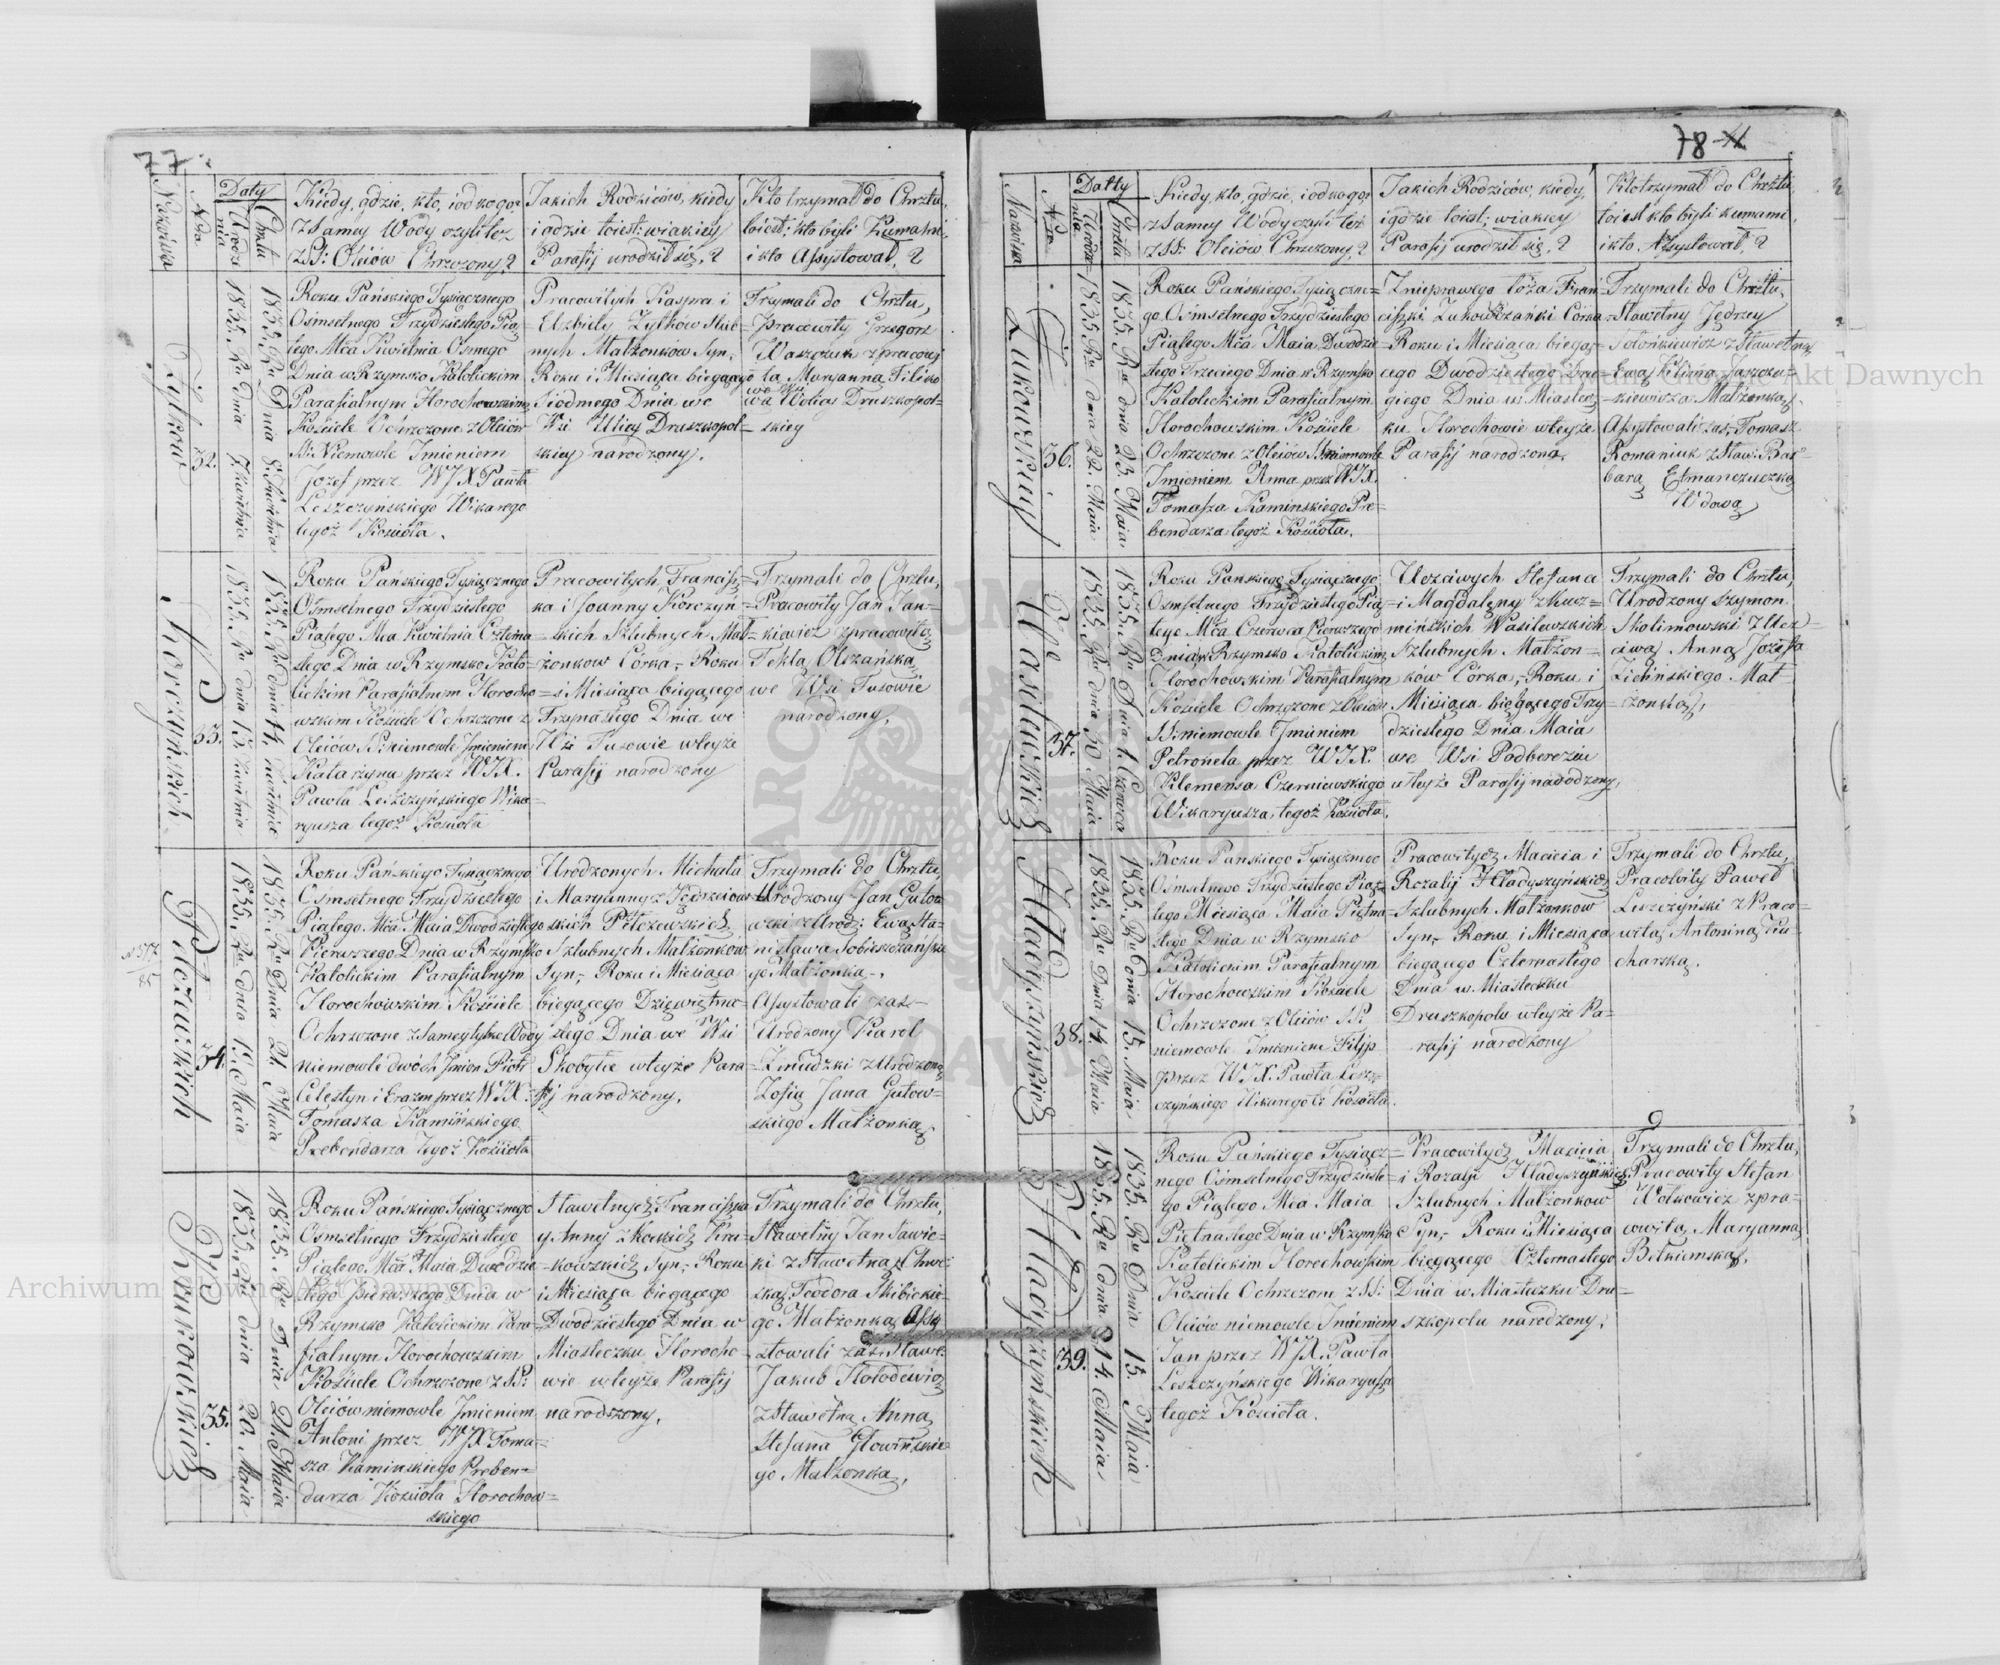 77.
Nazwiska
Nro.
Daty
Urodze
nia
Chrztu
Kiedy, gdzie, kto, i od kogo
z Samey Wody czyli też
z SS: Oleiów Chrzczony?
Jakich Rodziców, kiedy
i gdzie toiest: w iakiey
Parafij urodził się?
Kto trzymał do Chrztu,
toiest: kto byli Kumami,
i kto Assystował?
Żytków
32.
1835. Ru Dnia 7. Kwietnia
1835. Ru Dnia 8. Kwietnia
Roku Pańskiego Tysiącznego
Ośmsetnego Trzydziestego Pią
tego Mca Kwietnia Osmego
Dnia w Rzymsko Katolickim
Parafialnym Horochowskim
Kościele Ochrzczone z Oleiów
SS: Niemowle Imieniem
Jozef przez WJX Pawła
Leszczyńskiego Wikarego
tegoż Kościoła.
Pracowitych Kaspra i
Elzbiety Żytków Ślub=
nych Małżonków Syn,
Roku i Miesiąca biegącego
Siodmego Dnia we
Wsi Ulicy Druszkopol=
skiey narodzony.
Trzymali do Chrztu,
Pracowity Grzegorz
Waszczuk z pracowi
tą Maryanną Filipo
wą Wolicy Druszkopol=
skiey
Korczyńskich
33.
1835. Ru dnia 13. Kwietnia
1835 Ru dnia 14. kwietnia
Roku Pańskiego Tysiącznego
Ośmsetnego Trzydziestego
Piątego Mca Kwietnia Czterna=
stego Dnia w Rzymsko Kato=
lickim Parafialnym Horocho=
wskim Kościele Ochrzczone z
Oleiów SS. niemowle Imieniem
Katarzyna przez WJX.
Pawła Leszczyńskiego Wika=
ryusza tegoż Kościoła
Pracowitych Franciß=
ka i Joanny Korczyń=
skich Szlubnych Mał=
żonkow Córka, Roku
i Miesiąca biegącego
Trzynastego Dnia we
Wsi Tusowie wteyże
Parafij narodzony
Trzymali do Chrztu,
Pracowity Jan Jan=
kiewicz z pracowitą
Teklą Olszańską
we Wsi Tusowie
narodzony,
N 377
85
Pilczewskich
34.
1835. Ru dnia 19. Maia
1835. Ru Dnia 21. Maia
Roku Pańskiego Tysiącznego
Ośmsetnego Trzydziestego
Piątego Mca Maia Dwodziestego
Pierwszego Dnia w Rzymsko
Katolickim Parafialnym
Horochowskim Kościele
Ochrzczone z Samey tylko Wody
niemowle dwóch Imion Piotr
Celestyn i Erazm przez WJX:
Tomasza Kamińskiego
Prebendarza tegoż Kościoła
Urodzonych Michała
i Maryanny z Jędrzeiow
skich Pilczewskich
Szlubnych Małżonkow
Syn, Roku i Miesiąca
biegącego Dziewiętna=
stego Dnia we Wsi
Skobyłce wteyże Para
fij narodzony,
Trzymali do Chrztu,
Urodzony Jan Gutow
ski z Urod: Ewą Sta=
nisława Sobieszczańskie
go Małżonką.
Assystowali zaś
Urodzony Karol
Żmudzki z Urodzoną
Zofią Jana Gutow=
skiego Małżonką
Krukowskich
35.
1835. Ru dnia 20. Maia
1835. Ru Dnia 21. Maia
Roku Pańskiego Tysiącznego
Ośmsetnego Trzydziestego
Piątego Mca Maia Dwodzie=
stego pierwszego Dnia w
Rzymsko Katolickim Para=
fialnym Horochowskim
Kościele Ochrzczone z SS:
Oleiów niemowle Imieniem
Antoni przez WJX Toma=
sza Kamińskiego Preben=
darza Kościoła Horochow=
skiego
Sławetnych Franciszka
y Anny z Kockich Kru=
kowskich Syn, Roku
i Miesiąca biegącego
Dwodziestego Dnia w
Miasteczku Horocho=
wie wteyże Parafij
narodzony,
Trzymali do Chrztu,
Sławetny Jan Sawic=
ki z Sławetną
Teodora Skibickie=
go Małżonką Assy
stowali zaś Sławe:
Jakub Hołodewicz
z Sławetną Anną
Stefana Głowińskie=
go Małżonką,
78
Nazwiska
Nro.
Datty
Urodze=
nia
Chrztu
Kiedy, kto, gdzie, i od kogo
z Samey Wody czyli też
z SS: Oleiów Chrzczony?
Jakich Rodziców, kiedy,
i gdzie toiest; w iakiey
Parafij urodził się?
Kto trzymał do Chrztu,
toiest kto byli kumami,
i kto Assystował?
Żukowskiey
36.
1835. Ru dnia 22. Maia
1835. Ru dnia 23. Maia
Roku Pańskiego Tysiączne=
go Ośmsetnego Trzydziestego
Piątego Mca Maia Dwodzie=
stego Trzeciego Dnia w Rzymsko
Katolickim Parafialnym
Horochowskim Kościele
Ochrzczone z Oleiów SS niemowle
Imieniem Anna przez WJX.
Tomasza Kamińskiego Pre=
bendarza tegoż Kościoła.
Z nieprawego łoża Fran=
ciszki Żukowszczanki Córka
Roku i Miesiąca biegą=
cego Dwodziestego Dru=
giego Dnia w Miastecz
ku Horochowie wteyże
Parafij narodzona.
Trzymali do Chrztu,
Sławetny Jędrzey
Tołońkiewicz z Sławetną
Ewą Kilina Jaszczu=
kiewicza Małżonką,
Assystowali zaś Tomasz
Romaniuk z Sław: Bar=
barą Etmańczuczką
Wdową
Wasilewskich
37.
1835. Ru dnia 30 Maia
1835. Ru Dnia 1. Czerwca
Roku Pańskiego Tysiącznego
Ośmsetnego Trzydziestego Pią=
tego Mca Czerwca Pierwszego
Dnia w Rzymsko Katolickim
Horochowskim Parafialnym
Kościele Ochrzczone z Oleiów
SS: niemowle Imieniem
Petronela przez WJX.
Klemensa Czerniawskiego
Wikaryusza tegoż Kościoła.
Uczciwych Stefana
i Magdaleny z Kucz=
mińskich Wasilewskich
Szlubnych Małżon=
ków Córka, Roku i
Miesiąca biegącego Trzy=
dziestego Dnia Maia
we Wsi Podberezie
wteyże Parafij nadodzony,
Trzymali do Chrztu,
Urodzony Szymon
Skolimowski z Ucz=
ciwą Anną Jozefa
Zielińskiego Mał=
żonką,
Hładyszyńskich
38.
1835. Ru Dnia 14. Maia
1835. Ru dnia 15. Maia
Roku Pańskiego Tysiącznego
Ośmsetnego Trzydziestego Pią=
tego Miesiąca Maia Piętna=
stego Dnia w Rzymsko
Katolickim Parafialnym
Horochowskim Kościele
Ochrzczone z Oleiów SS.
niemowle Imieniem Filip
przez WJX. Pawła Lesz=
czyńskiego Wikarego tż Kościoła.
Pracowitych Macieia i
Rozalij Hładyszyńskich
Szlubnych Małżonkow
Syn, Roku i Miesiąca
biegącego Czternastego
Dnia w Miasteczku
Druszkopolu wteyże Pa=
rafij narodzony
Trzymali do Chrztu,
Pracowity Paweł
Leszczyński z Praco=
witą Antoniną Ku=
charską.
Hładyszyńskich
39.
1835. Ru Dnia 14. Maia
1835. Ru Dnia 15. Maia
Roku Pańskiego Tysiącz=
nego Ośmsetnego Trzydzieste=
go Piątego Mca Maia
Piętnastego Dnia w Rzymsko
Katolickim Horochowskim
Kościele Ochrzczone z SS:
Oleiów niemowle Imieniem
Jan przez WJX. Pawła
Leszczyńskiego Wikaryusza
tegoż Kościoła.
Pracowitych Macieia
i Rozalji Hładyszyńskich
Szlubnych Małżonkow
Syn, Roku i Miesiąca
biegącego Czternastego
Dnia w Miasteczku Dru=
szkopolu narodzony,
Trzymali do Chrztu,
Pracowity Stefan
Wołkowicz z pra=
cowitą Maryanną
Bitkiemską.
Archiwum Główne Akt Dawnych
Archiwum Główne Akt Dawnych